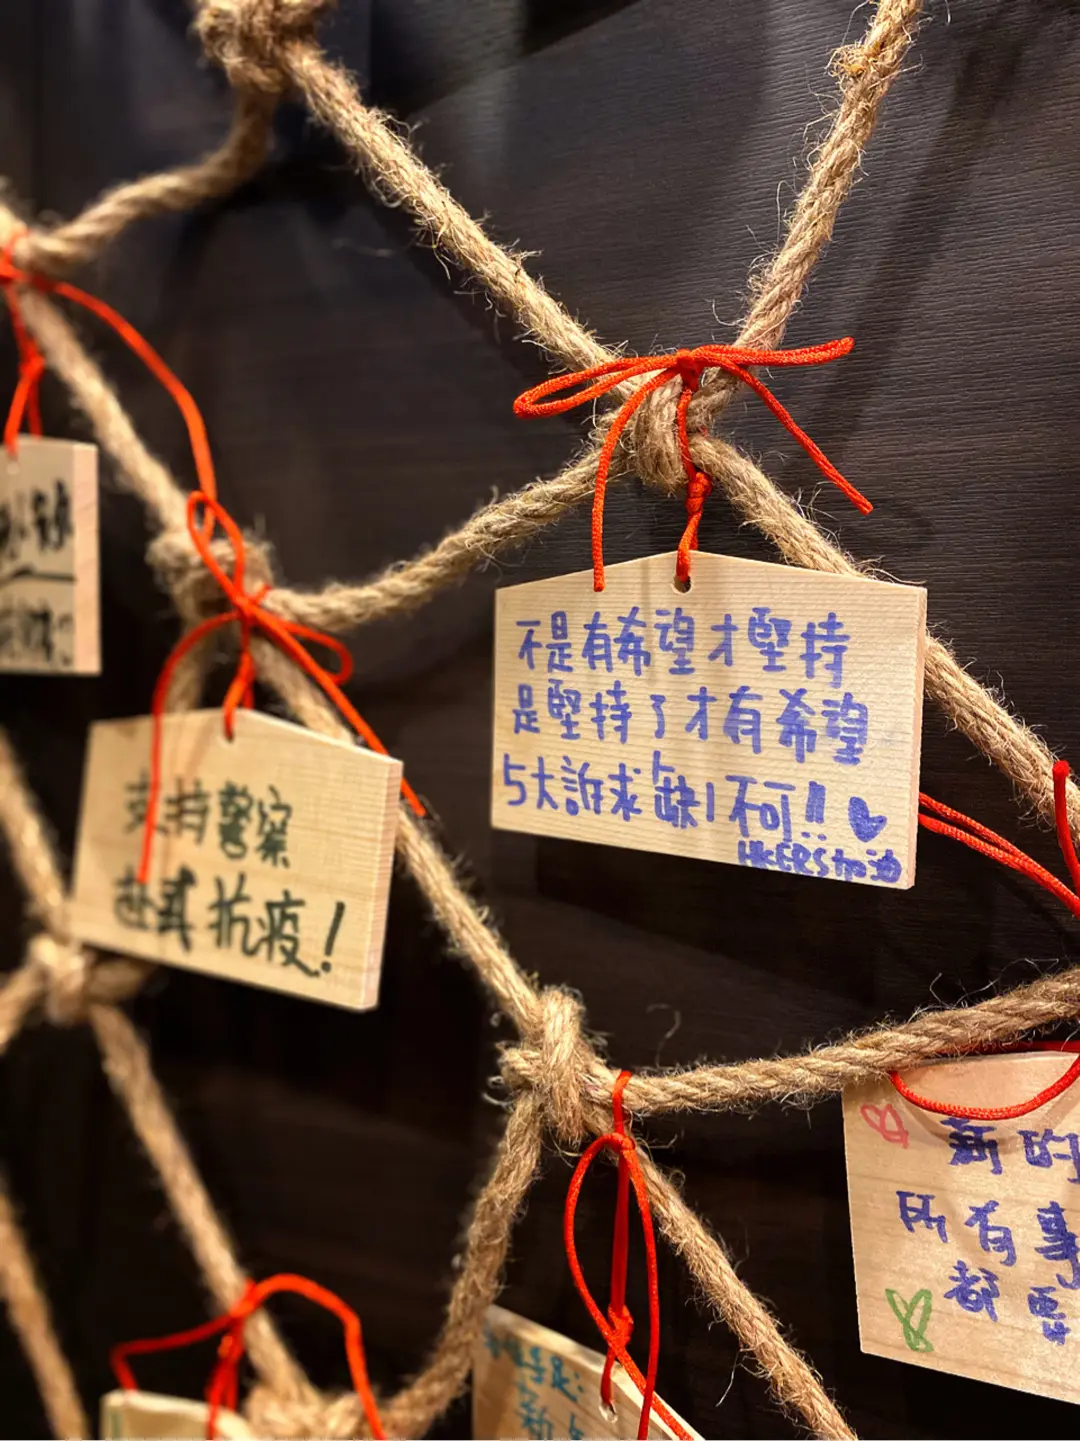 不是有希望才堅持
是堅持了才有希望
5大訴求缺1不可!!
HKERS加油
支持警察
抗疫!
新的
所有事
都要